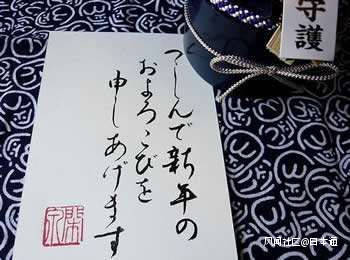 つゝしんで新年の
およろこびを
申しあげます
守護
风闻社区@日本通